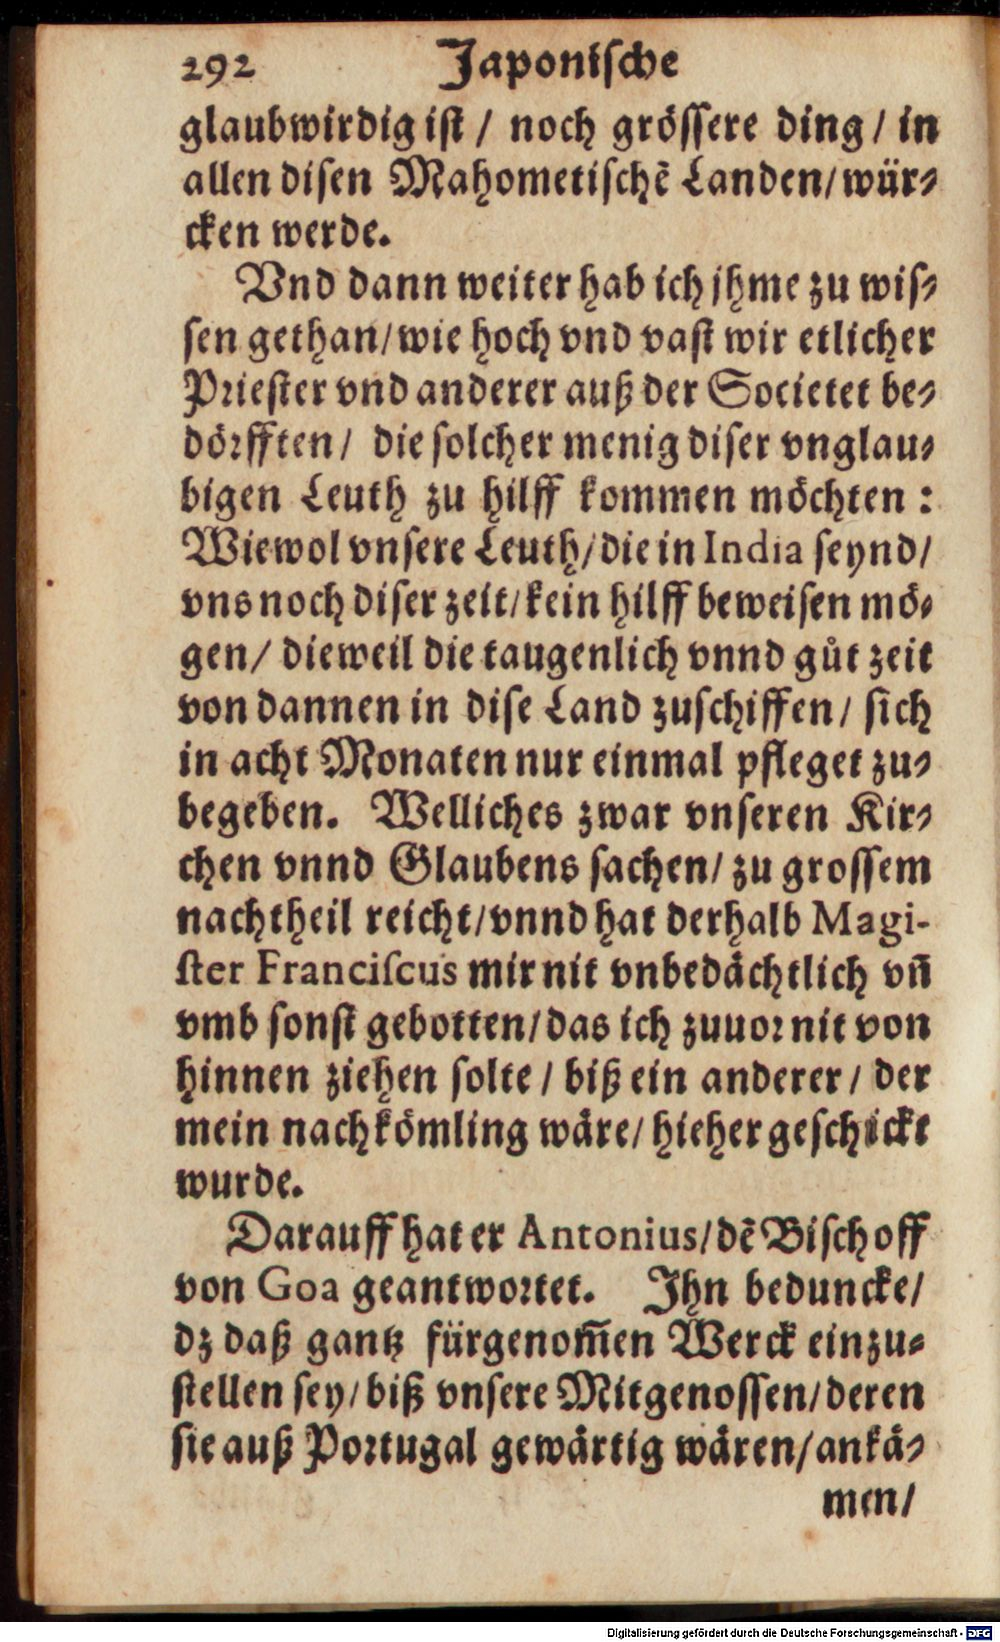 292 Japonische
glaubwirdig ist / noch grössere ding / in
allen disen Mahometischē Landen / wür⸗
cken werde.
Vnd dann weiter hab ich jhme zu wis⸗
sen gethan / wie hoch vnd vast wir etlicher
Priester vnd anderer auß der Societet be⸗
dörfften / die solcher menig diser vnglau⸗
bigen Leuth zu hilff kommen möchten :
Wiewol vnsere Leuth / die in India seynd /
vns noch diser zeit / kein hilff beweisen mö⸗
gen / dieweil die taugenlich vnnd gůt zeit
von dannen in dise Land zuschiffen / sich
in acht Monaten nur einmal pfleget zu⸗
begeben. Welliches zwar vnseren Kir⸗
chen vnnd Glaubens sachen / zu grossem
nachtheil reicht / vnnd hat derhalb Magi-
ster Franciscus mir nit vnbedächtlich vñ
vmb sonst gebotten / das ich zuuor nit von
hinnen ziehen solte / biß ein anderer / der
mein nachkömling wäre / hieher geschickt
wurde.
Darauff hat er Antonius / dē Bischoff
von Goa geantwortet. Ihn beduncke /
dz daß gantz fürgenom̃en Werck einzu⸗
stellen sey / biß vnsere Mitgenossen / deren
sie auß Portugal gewärtig wären / ankä⸗
men /
Digitalisierung gefördert durch die Deutsche Forschungsgemeinschaft - DFG